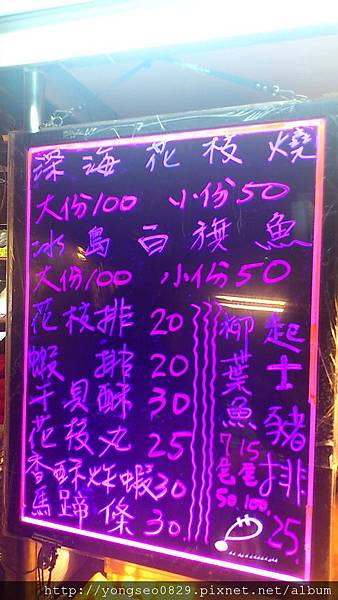 深海花枝燒
大份100 小份50
冰島白旗魚
大份100 小份50
花枝排 20
蝦排 20
干貝酥 30
花枝丸 25
香酥炸蝦 30
馬蹄條 30
柳葉魚
7尾50
15尾100
起士豬排 25
http://yongseo0829.pixnet.net/album